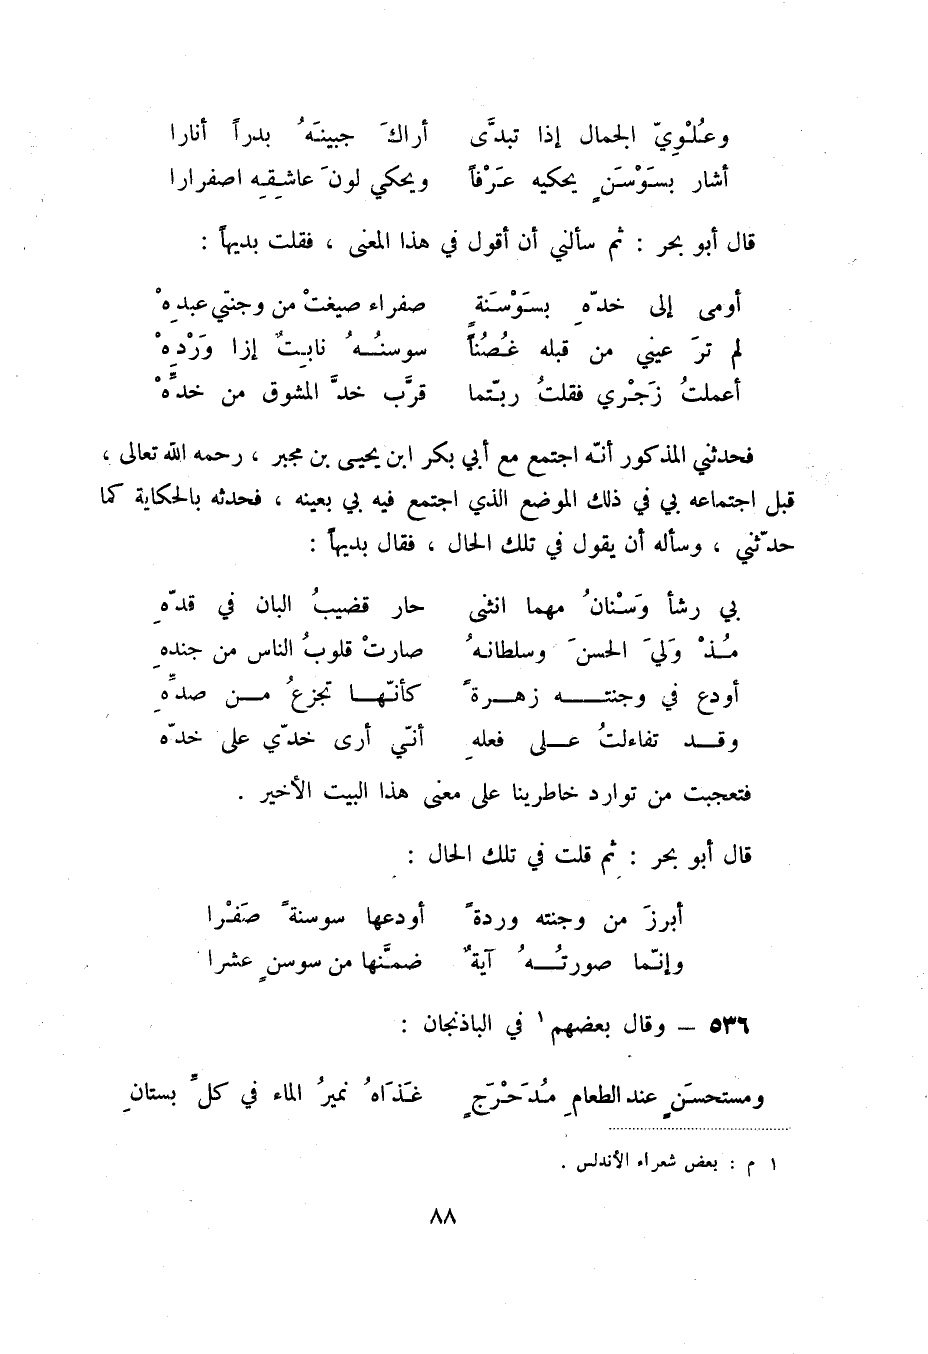 وعُلْوِيّ الجمال إذا تبدَّى أراكَ جبينَهُ بدراً أنارا
أشار بسَوْسَنٍ يحكيه عَرْفاً ويحكي لونَ عاشقِه اصفرارا
قال أبو بحر : ثم سألني أن أقول في هذا المعنى ، فقلت بديهاً :
أومى إلى خدّهِ بسَوْسَنَةٍ صفراء صيغتْ من وجنتي عبدِهْ
لم ترَ عيني من قبله غُصُناً سوسنُهُ نابتٌ إزا وَرْدِهْ
أعملتُ زَجْري فقلتُ ربّتما قرَّب خدَّ المشوق من خدِّهْ
فحدثني المذكور أنّه اجتمع مع أبي بكر ابن يحيى بن مجبر ، رحمه الله تعالى ،
قبل اجتماعه بي في ذلك الموضع الذي اجتمع فيه بي بعينه ، فحدثه بالحكاية كما
حدّثني ، وسأله أن يقول في تلك الحال ، فقال بديهاً :
بي رشأ وَسْنانُ مهما انثنى حار قضيبُ البان في قدّهِ
مُذْ وَليَ الحسنَ وسلطانهُ صارتْ قلوبُ الناس من جندهِ
أودع في وجنتـــه زهـرةً كأنّهـا تجزعُ مـن صدِّهِ
وقـد تفاءلتُ عـلى فعلهِ أنّي أرى خدّي على خدّهِ
فتعجبت من توارد خاطرينا على معنى هذا البيت الأخير .
قال أبو بحر : ثم قلت في تلك الحال :
أبرزَ من وجنته وردةً أودعها سوسنةً صَفْرا
وإنّما صورتُـهُ آيةٌ ضمَّنها من سوسنٍ عشرا
٥٣٦ – وقال بعضهم١ في الباذنجان :
ومستحسَنٍ عند الطعامِ مُدَحْرَجٍ غَذَاهُ نميرُ الماء في كلِّ بستانِ
١ م : بعض شعراء الأندلس .
٨٨